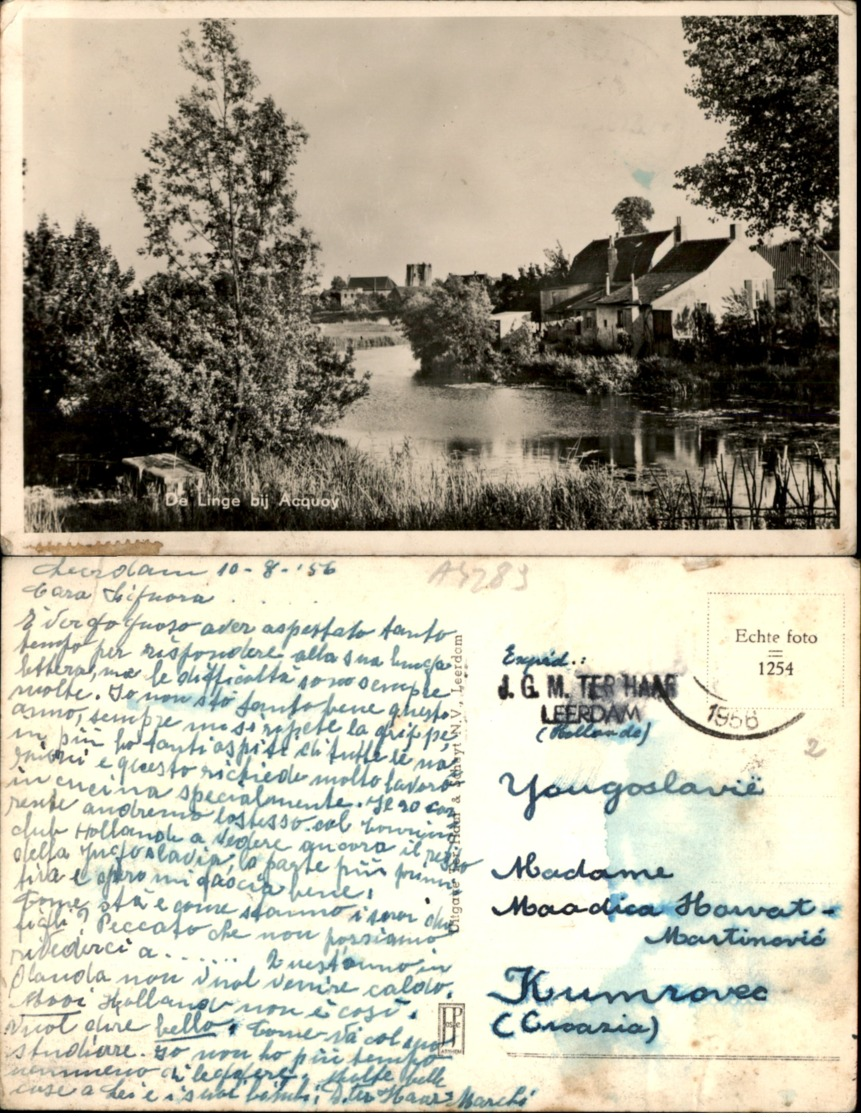 De Linge bij Acquoy
Leerdam 10-8-'56
Cara Signora
È vergognoso aver aspettato tanto
tempo per rispondere alla sua lunga
lettera, ma le difficoltà sono sempre
molte. Io non stò tanto bene questo
anno, sempre mi si ripete la grippe
in più ho tanti ospiti di tutte le na
zioni e questo richiede molto lavoro
in cucina specialmente.
andremo lostesso col
club Hollande a vedere ancora il resto
della Jugoslavia, la parte più
e spero mi faccia bene.
Come stà e come stanno i suoi due
figli? Peccato che non possiamo
rivederci a ....... Quest'anno in
Olanda non vuol venire caldo.
Mooi Holland non è così.
Vuol dire bello. Come va col suo
studiare. Io non ho più tempo
nemmeno di leggere. Molte belle
cose a Lei e i suoi bimbi, S. ter Haar-Marchi
Uitgave Ter Haar & Schuyt N.V., Leerdam
A4283
Echte foto
=
1254
Expéd.:
J. G. M. TER HAAR
LEERDAM
(Hollande)
1956
2
Yougoslavië
Madame
Maadica Horvat-
Martinović
Kumrovec
(Croazia)